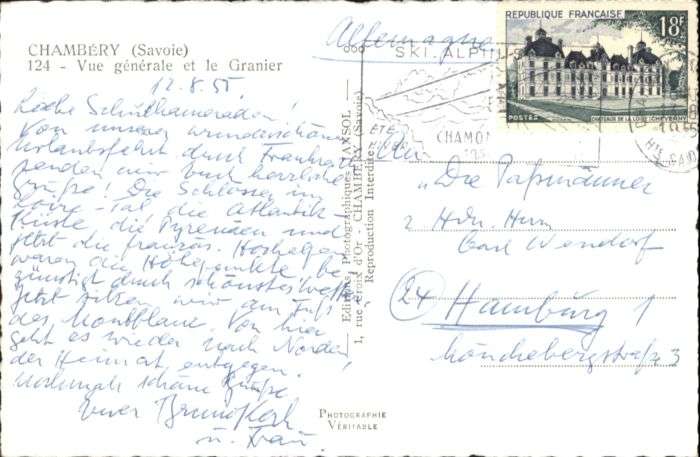 CHAMBÉRY (Savoie)
124 - Vue générale et le Granier
12.8.55.
Liebe Schulkameraden!
Von unserer wunderschönen
Urlaubsfahrt durch Frankreich
senden wir Euch herzliche
Grüße. Die Schlösser im
Loire-Tal die Atlantik-
Küste, die Pyrenäen und
jetzt die französ. Hochalpen
waren die Höhepunkte be
günstigt durch schönstes Wetter
Jetzt sitzen wir am Fuß
des Montblanc. Von hier
geht es wieder nach Norden
der Heimat entgegen.
Nochmals schöne Grüße
Euer Bruno
u. Frau.
Editions Photographiques
1, rue Croix d'Or - CHAMBÉRY (Savoie)
Reproduction Interdite
PHOTOGRAPHIE
VÉRITABLE
Allemagne
REPUBLIQUE FRANÇAISE
18F
POSTES
CHATEAUX DE LA LOIRE (CHEVERNY)
SKI. ALPINISME
ÉTÉ
CHAMONIX
An
"Die Paßmänner
z. Hdn. Herrn
Carl Wendorf
(24) Hamburg 1
Mönckebergstraße 3